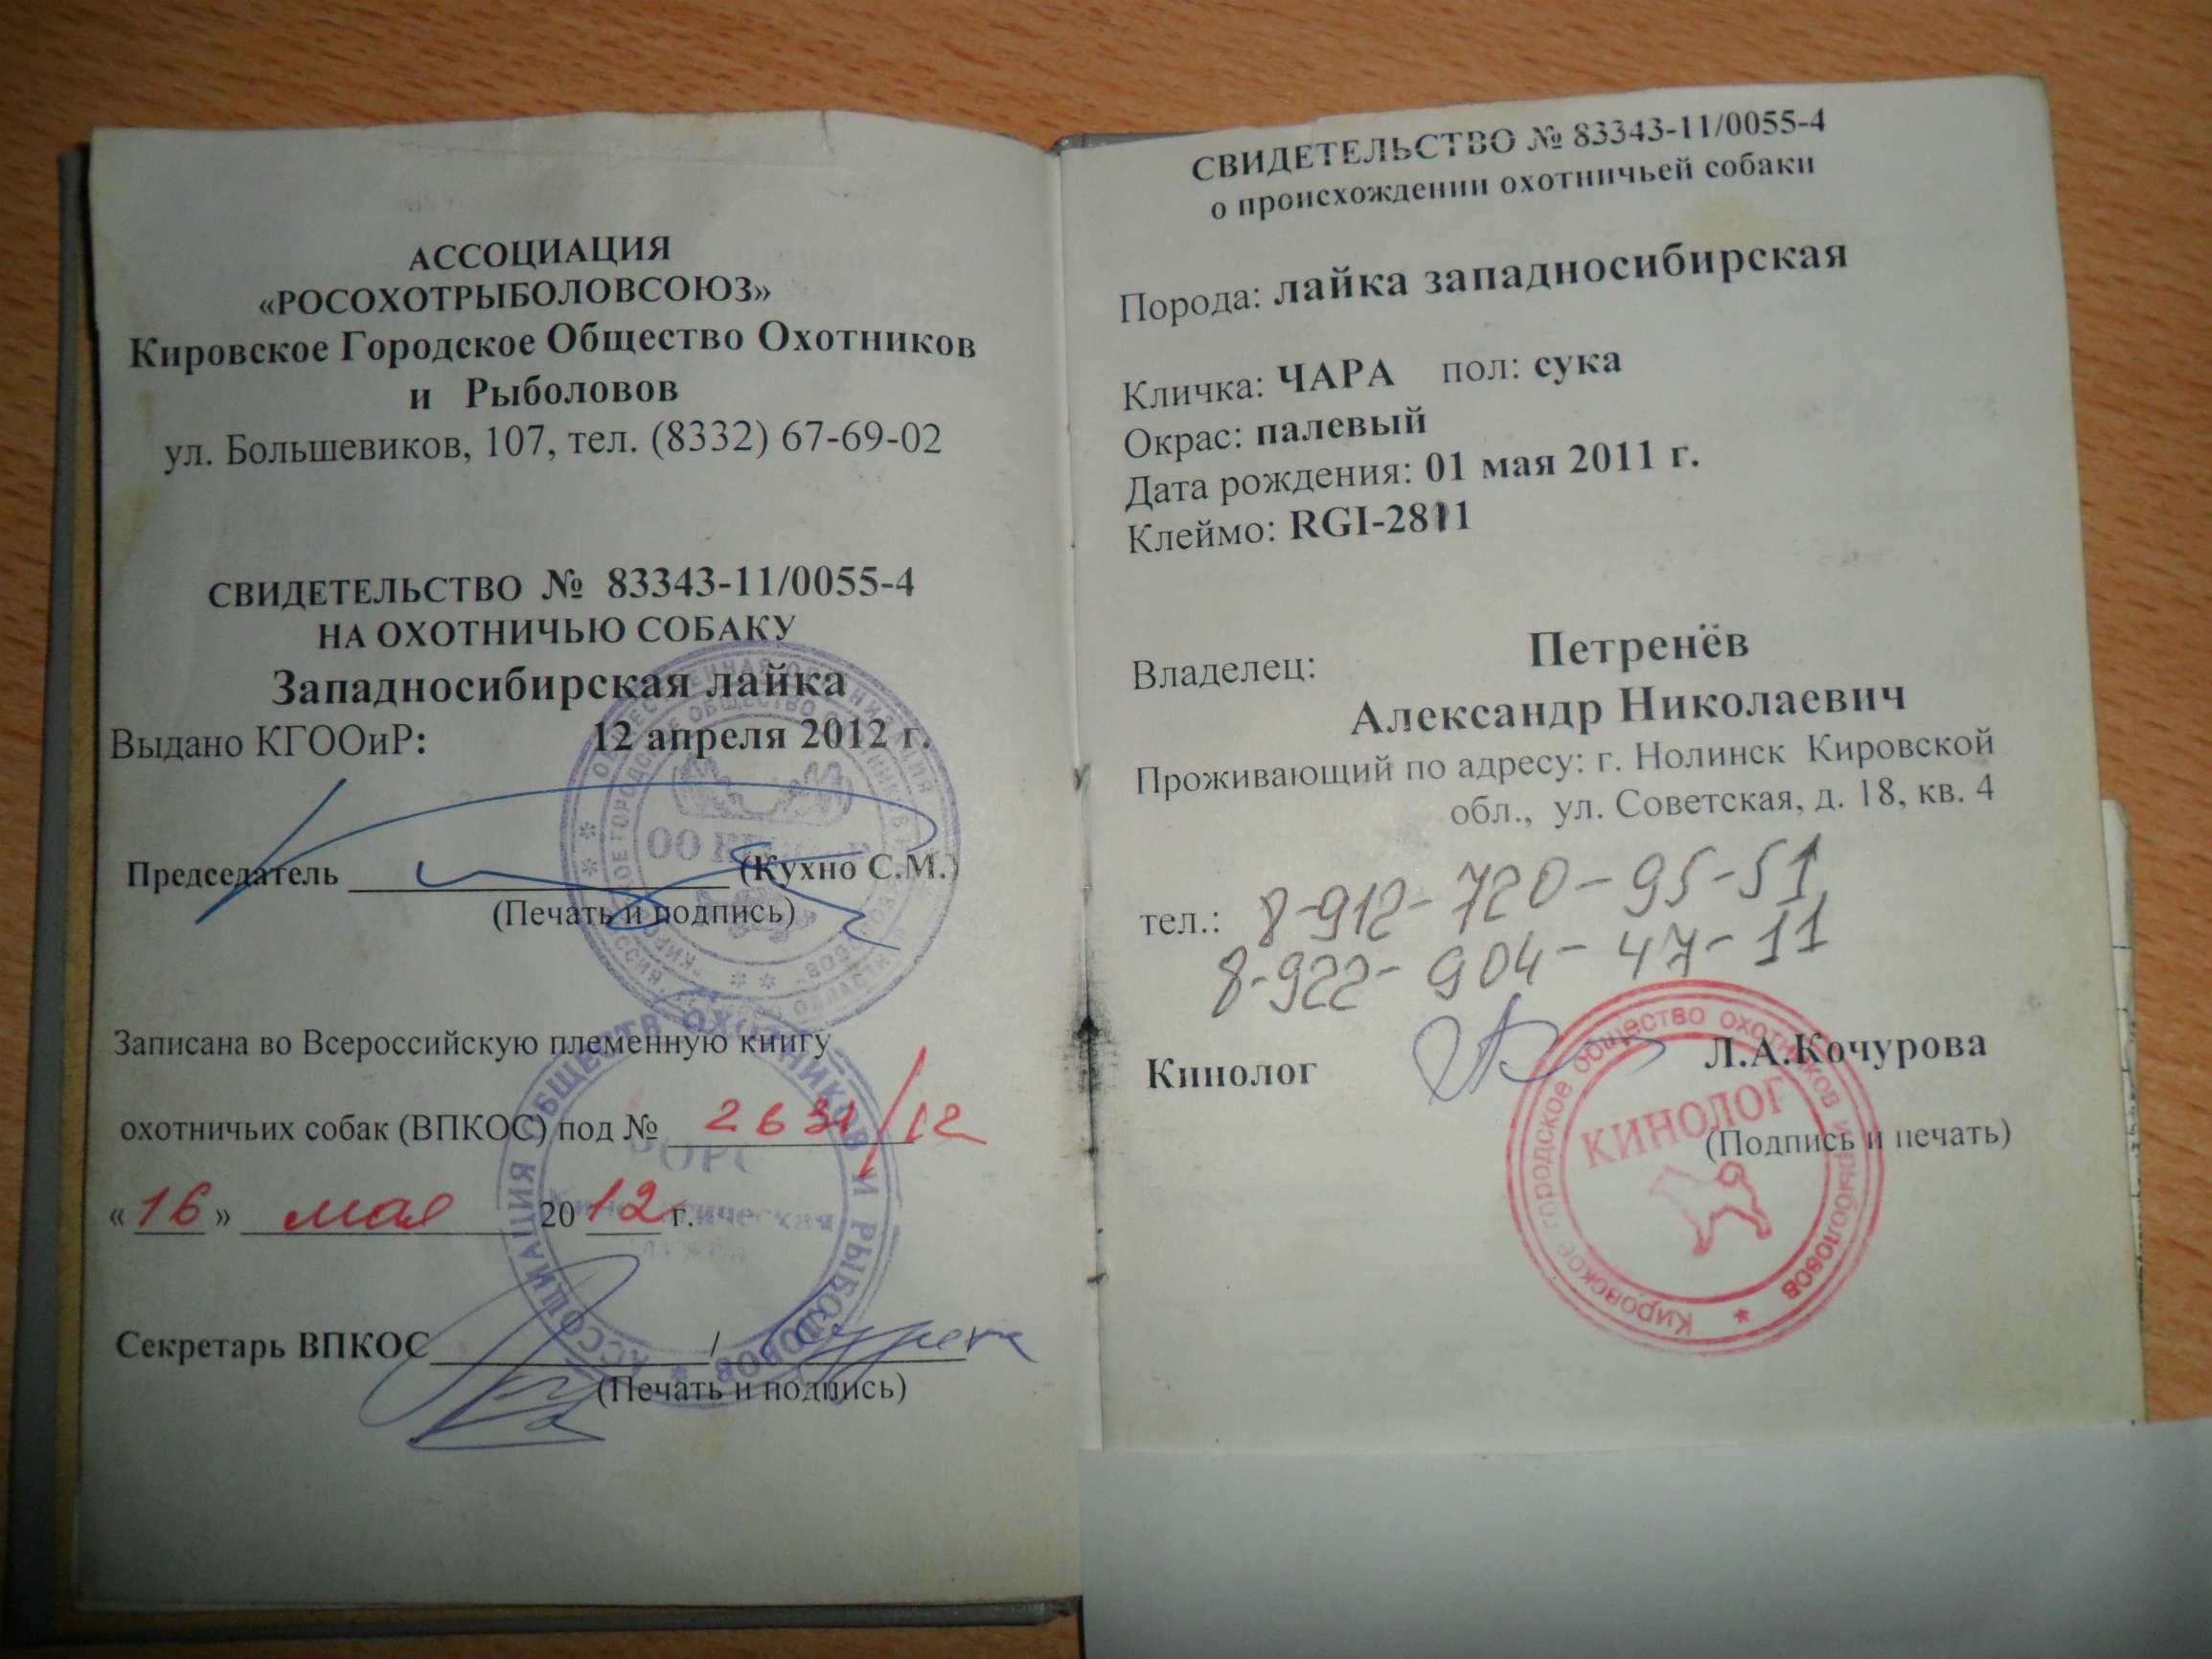 АССОЦИАЦИЯ
«РОСОХОТРЫБОЛОВСОЮЗ»
Кировское Городское Общество Охотников
и Рыболовов
ул. Большевиков, 107, тел. (8332) 67-69-02
СВИДЕТЕЛЬСТВО № 83343-11/0055-4
НА ОХОТНИЧЬЮ СОБАКУ
Западносибирская лайка
Выдано КГООиР: 12 апреля 2012 г.
Председатель (Кухно С.М.)
(Печать и подпись)
Записана во Всероссийскую племенную книгу
охотничьих собак (ВПКОС) под № 2631/12
«16» мая 2012 г.
Секретарь ВПКОС /
(Печать и подпись)
АССОЦИАЦИЯ ОБЩЕСТВ ОХОТНИКОВ И РЫБОЛОВОВ
СВИДЕТЕЛЬСТВО № 83343-11/0055-4
о происхождении охотничьей собаки
Порода: лайка западносибирская
Кличка: ЧАРА пол: сука
Окрас: палевый
Дата рождения: 01 мая 2011 г.
Клеймо: RGI-2811
Владелец: Петренёв
Александр Николаевич
Проживающий по адресу: г. Нолинск Кировской
обл., ул. Советская, д. 18, кв. 4
тел.: 8-912-720-95-51
8-922-904-47-11
Кинолог Л.А.Кочурова
(Подпись и печать)
Кировское городское общество охотников и рыболовов
КИНОЛОГ